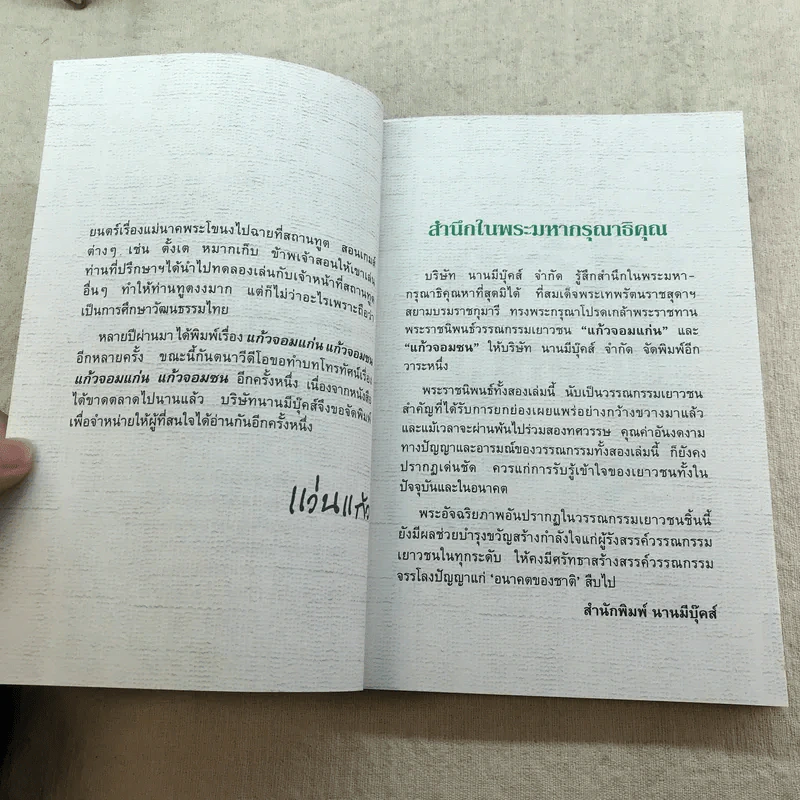 ยนตร์เรื่องแม่นาคพระโขนงไปฉายที่สถานทูต สอนเกมส์
ต่างๆ เช่น ตั้งเต หมากเก็บ ข้าพเจ้าสอนให้เขาเล่น
ท่านที่ปรึกษาฯได้นำไปทดลองเล่นกับเจ้าหน้าที่สถานทูต
อื่นๆ ทำให้ท่านทูตงงมาก แต่ก็ไม่ว่าอะไรเพราะถือว่า
เป็นการศึกษาวัฒนธรรมไทย
หลายปีผ่านมา ได้พิมพ์เรื่อง แก้วจอมแก่น แก้วจอมซน
อีกหลายครั้ง ขณะนี้กันตนาวีดีโอขอทำบทโทรทัศน์เรื่อง
แก้วจอมแก่น แก้วจอมซน อีกครั้งหนึ่ง เนื่องจากหนังสือ
ได้ขาดตลาดไปนานแล้ว บริษัทนานมีบุ๊คส์จึงขอจัดพิมพ์
เพื่อจำหน่ายให้ผู้ที่สนใจได้อ่านกันอีกครั้งหนึ่ง
แว่นแก้ว
สำนึกในพระมหากรุณาธิคุณ
บริษัท นานมีบุ๊คส์ จำกัด รู้สึกสำนึกในพระมหา-
กรุณาธิคุณหาที่สุดมิได้ ที่สมเด็จพระเทพรัตนราชสุดาฯ
สยามบรมราชกุมารี ทรงพระกรุณาโปรดเกล้าฯ พระราชทาน
พระราชนิพนธ์วรรณกรรมเยาวชน “แก้วจอมแก่น” และ
“แก้วจอมซน” ให้บริษัท นานมีบุ๊คส์ จำกัด จัดพิมพ์อีก
วาระหนึ่ง
พระราชนิพนธ์ทั้งสองเล่มนี้ นับเป็นวรรณกรรมเยาวชน
สำคัญที่ได้รับการยกย่องเผยแพร่อย่างกว้างขวางมาแล้ว
และแม้เวลาจะผ่านพ้นไปร่วมสองทศวรรษ คุณค่าอันงดงาม
ทางปัญญาและอารมณ์ของวรรณกรรมทั้งสองเล่มนี้ ก็ยังคง
ปรากฏเด่นชัด ควรแก่การรับรู้เข้าใจของเยาวชนทั้งใน
ปัจจุบันและในอนาคต
พระอัจฉริยภาพอันปรากฏในวรรณกรรมเยาวชนชิ้นนี้
ยังมีผลช่วยบำรุงขวัญสร้างกำลังใจแก่ผู้รังสรรค์วรรณกรรม
เยาวชนในทุกระดับ ให้คงมีศรัทธาสร้างสรรค์วรรณกรรม
จรรโลงปัญญาแก่ ‘อนาคตของชาติ’ สืบไป
สำนักพิมพ์ นานมีบุ๊คส์